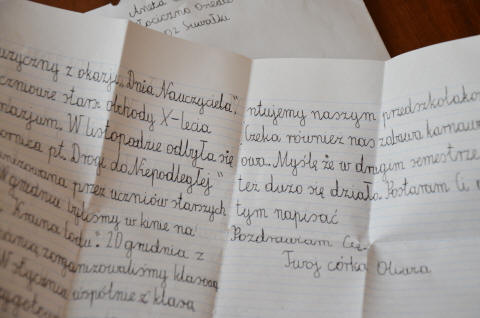 Aneta
Suwałki
uzyczny z okazji „Dnia Nauczyciela”,
czniowie starsi obchody X-lecia
nazjum. W listopadzie odbyła się
ornica pt. „Drogi do Niepodległej”
nizowana przez uczniów starszych
W grudniu byliśmy w kinie na
„Kraina Lodu”. 20 grudnia z
zorganizowaliśmy klasową
W styczniu wspólnie z klasą
ntujemy naszym przedszkolako
Czeka również nas zabawa karnaw
owa. Myślę że w drugim semestrze
też dużo się działo. Postaram Ci
tym napisać
Pozdrawiam Cię.
Twoj córka